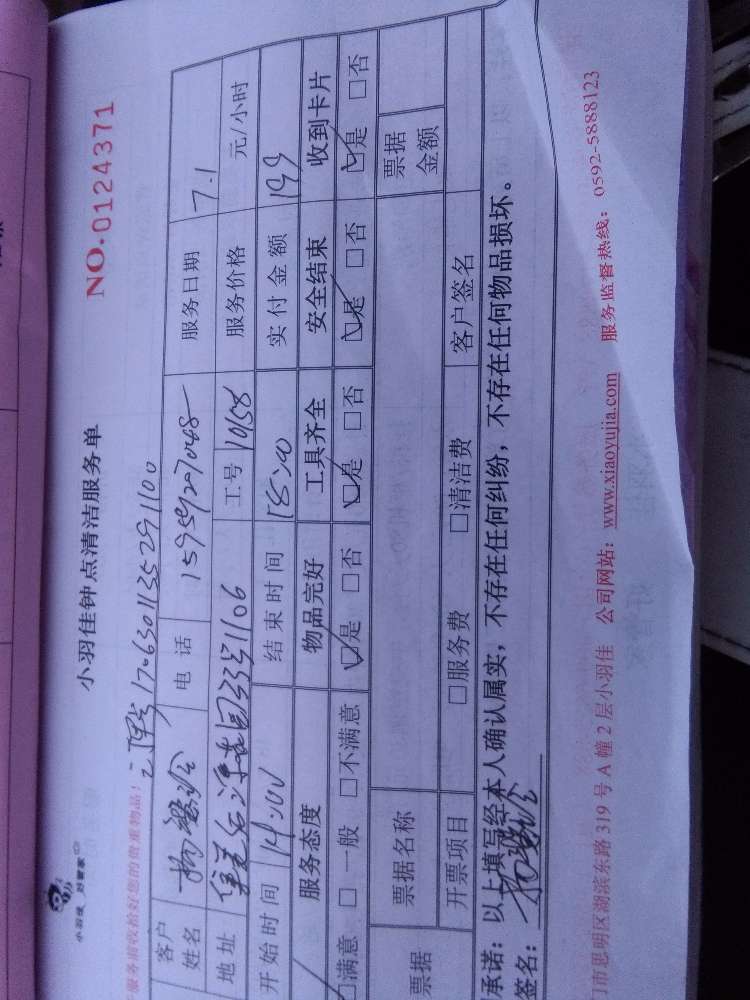 小羽佳 好管家
小羽佳钟点清洁服务单
NO.0124371
服务前收拾好您的贵重物品!
1706301135291100
客户姓名 电话 15959207048 服务日期 7.1
地址 1106 工号 10158 服务价格 元/小时
开始时间 14:00 结束时间 18:00 实付金额 199
服务态度 物品完好 工具齐全 安全结束 收到卡片
□满意 □一般 □不满意 □是 □否 □是 □否 □是 □否 □是 □否
票据 票据名称 票据金额
开票项目 □服务费 □清洁费 客户签名
承诺:以上填写经本人确认属实,不存在任何纠纷,不存在任何物品损坏。
签名:
门市思明区湖滨东路 319 号 A 幢 2 层小羽佳 公司网站:www.xiaoyujia.com 服务监督热线:0592-5888123